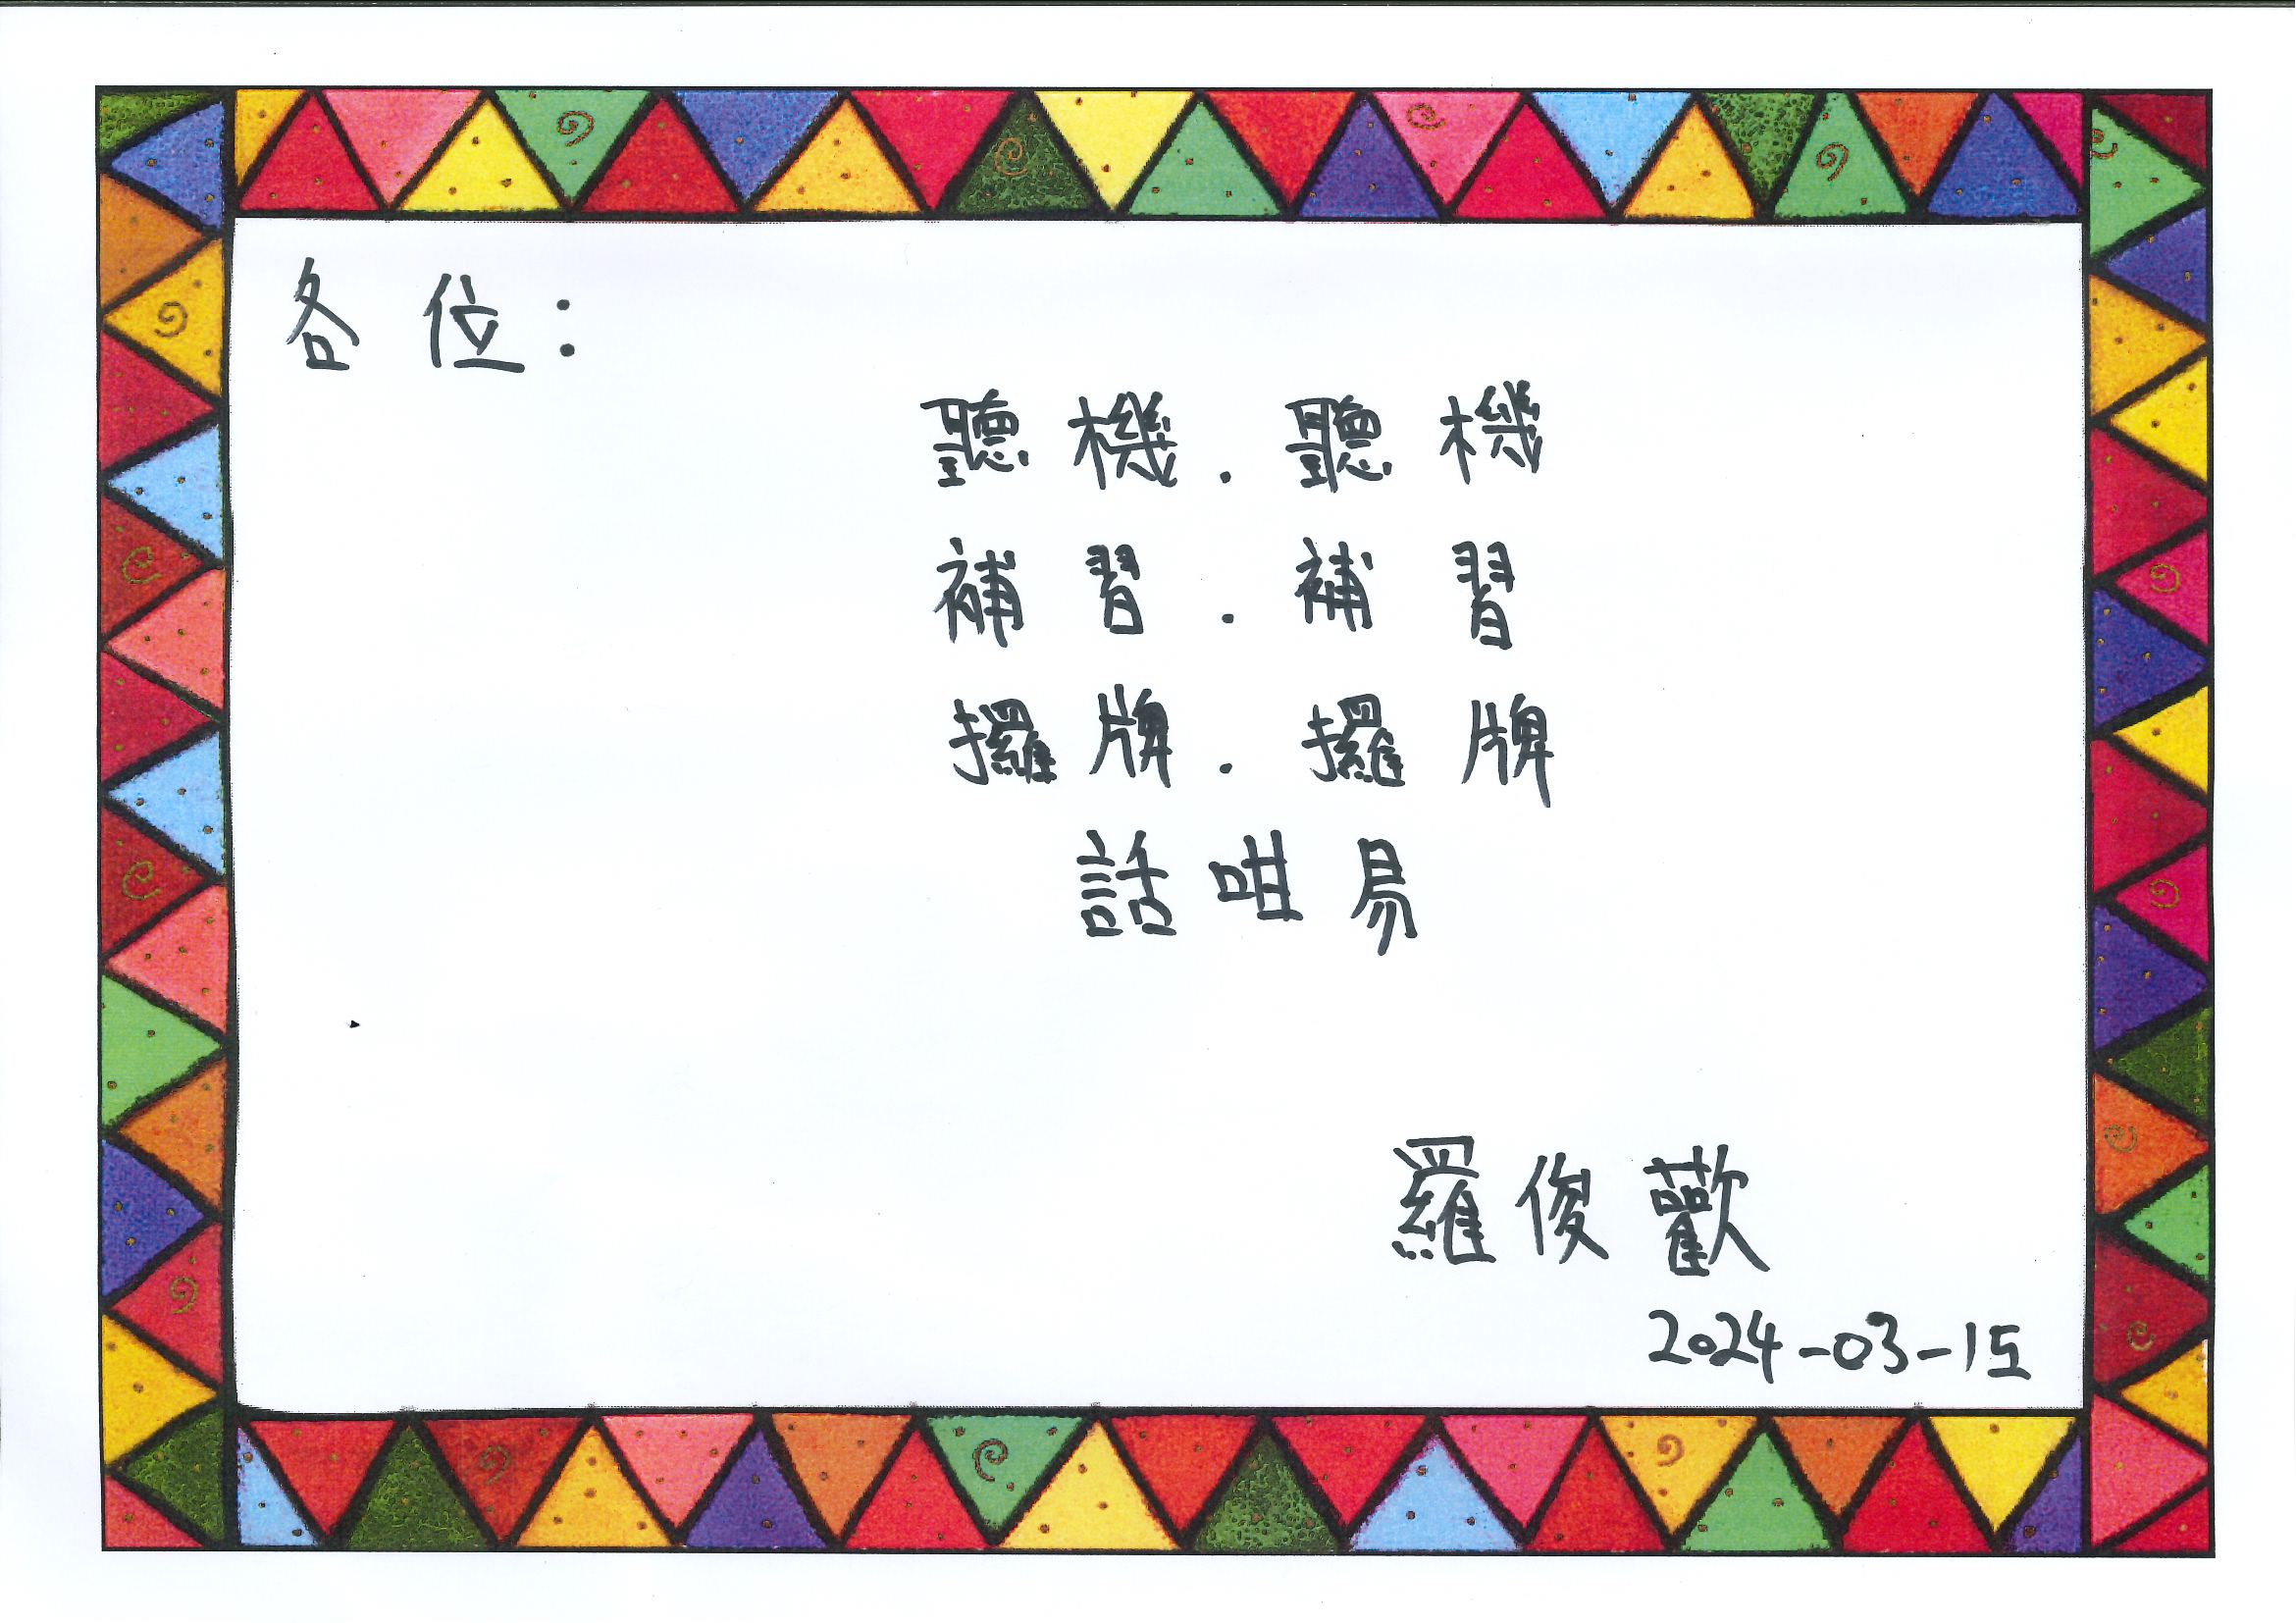 各位：
聽機．聽機
補習．補習
攞牌．攞牌
話咁易
羅俊歡
2024-03-15